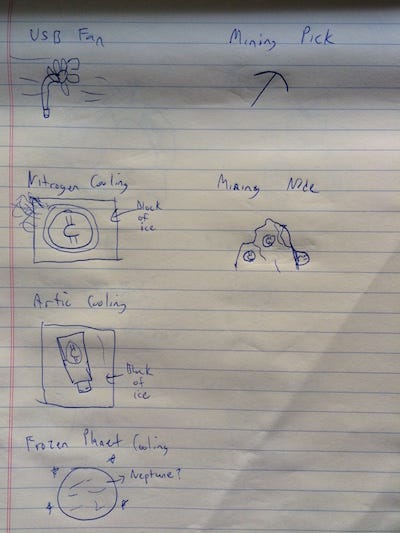 USB Fan
Mining Pick
Nitrogen Cooling
Mining Node
Block
of
ice
Artic Cooling
Block
of
ice
Frozen Planet Cooling
Neptune?